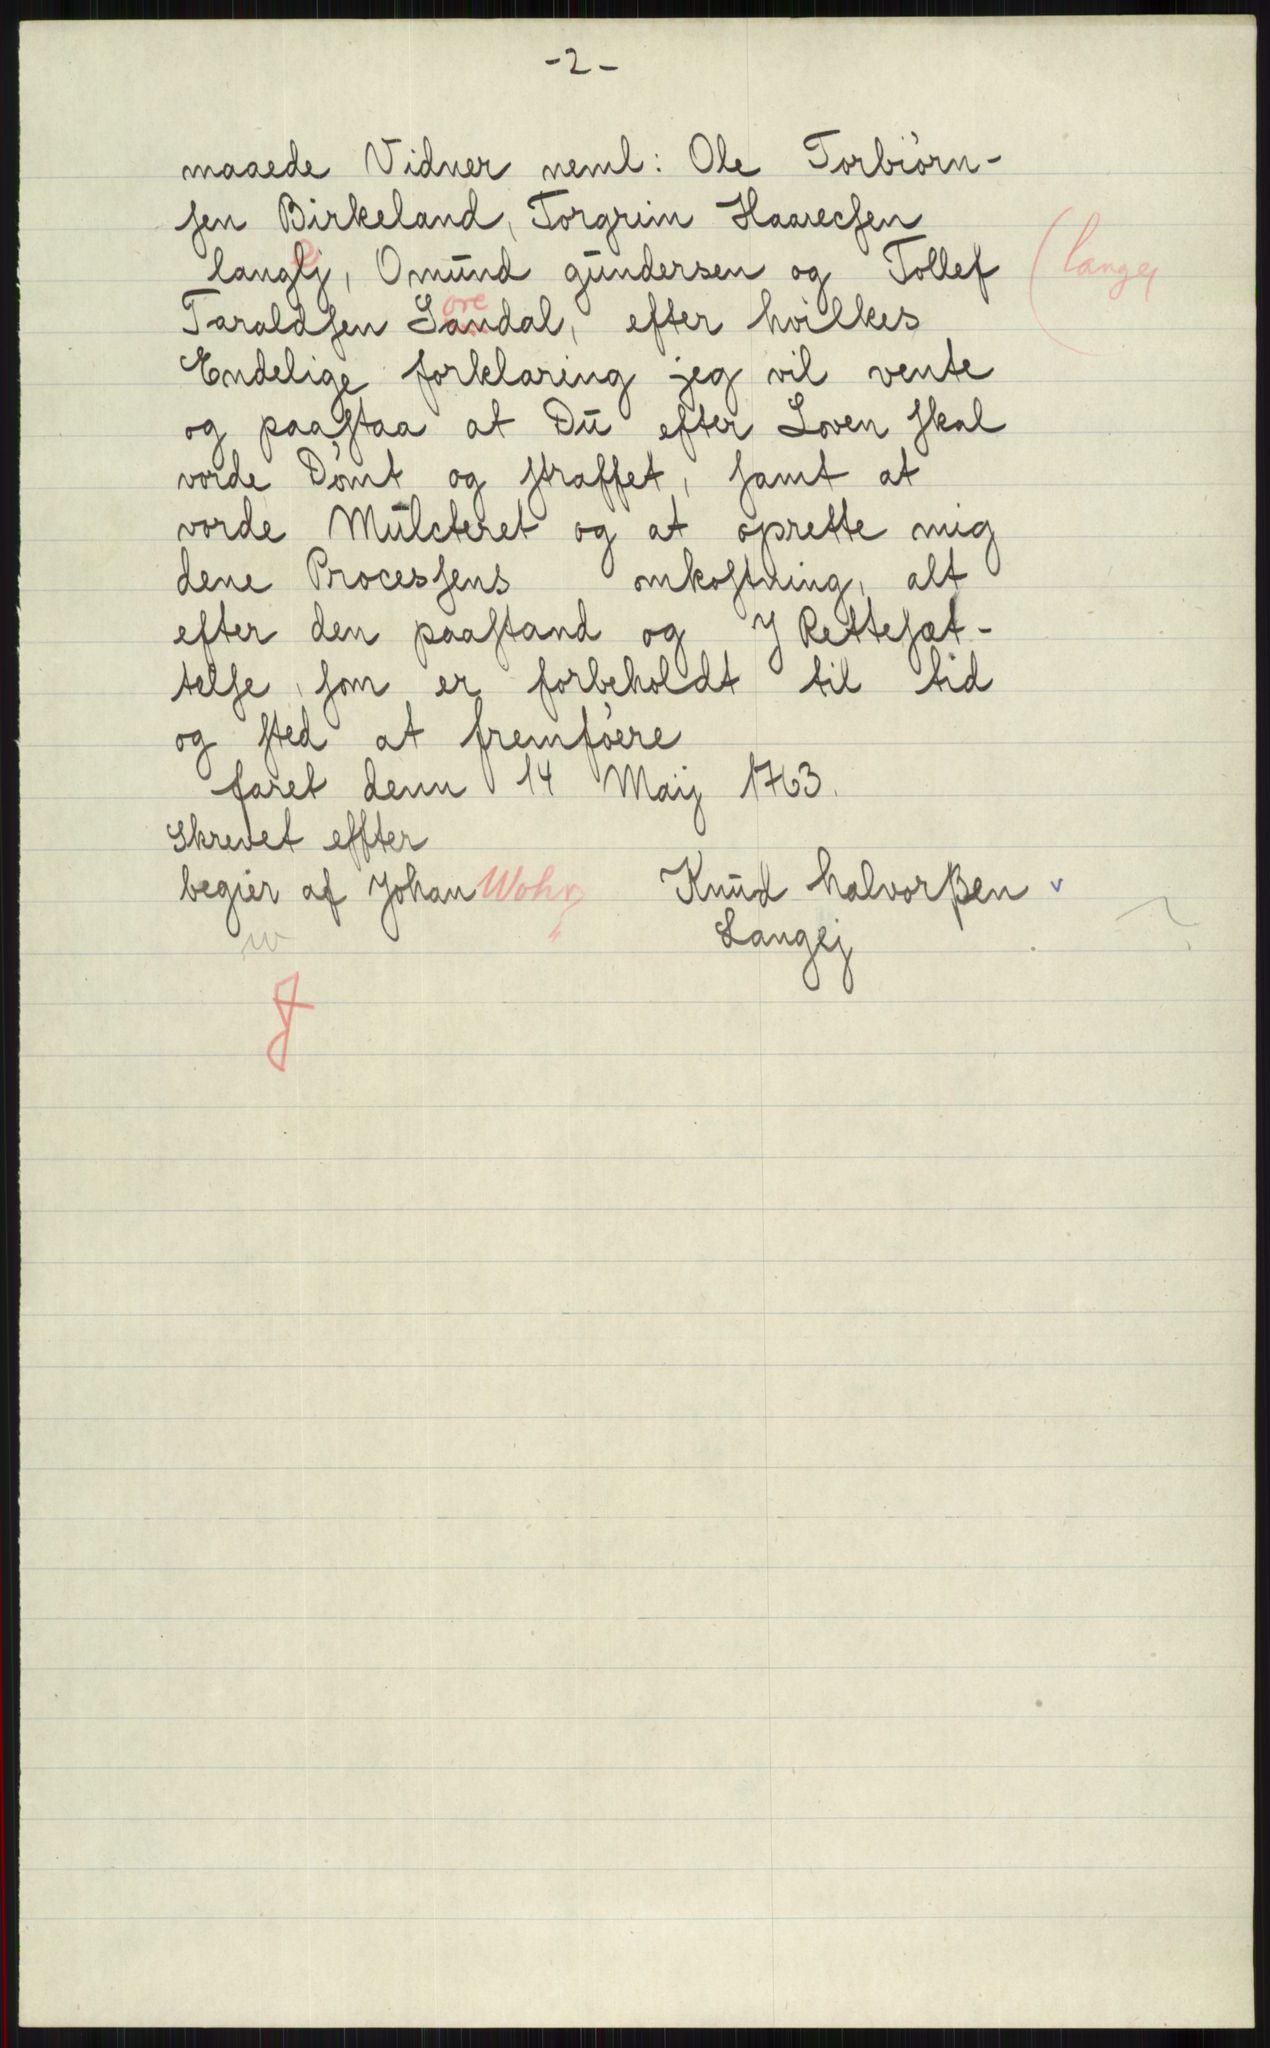 -2-
maaede Vidner neml: Ole Torbiörn-
sen Birkeland, Torgrim Haarecsen
langej, Omund gundersen og Tollef (langej
Taraldsen Soredal, efter hvilkes
Endelige forklaring jeg vil vente
og paastaa at Du efter Loven skal
vorde Dömt og straffet, samt at
vorde Mulcteret og at oprette mig
dene Processens omkostning, alt
efter den paastand og J Rettesæt-
telse, som er forbeholdt til tid
og sted at fremföere
faret denn 14 Maij 1763.
Skrevet effter
begier af Johan Wohr Knud halvorßen
Langej